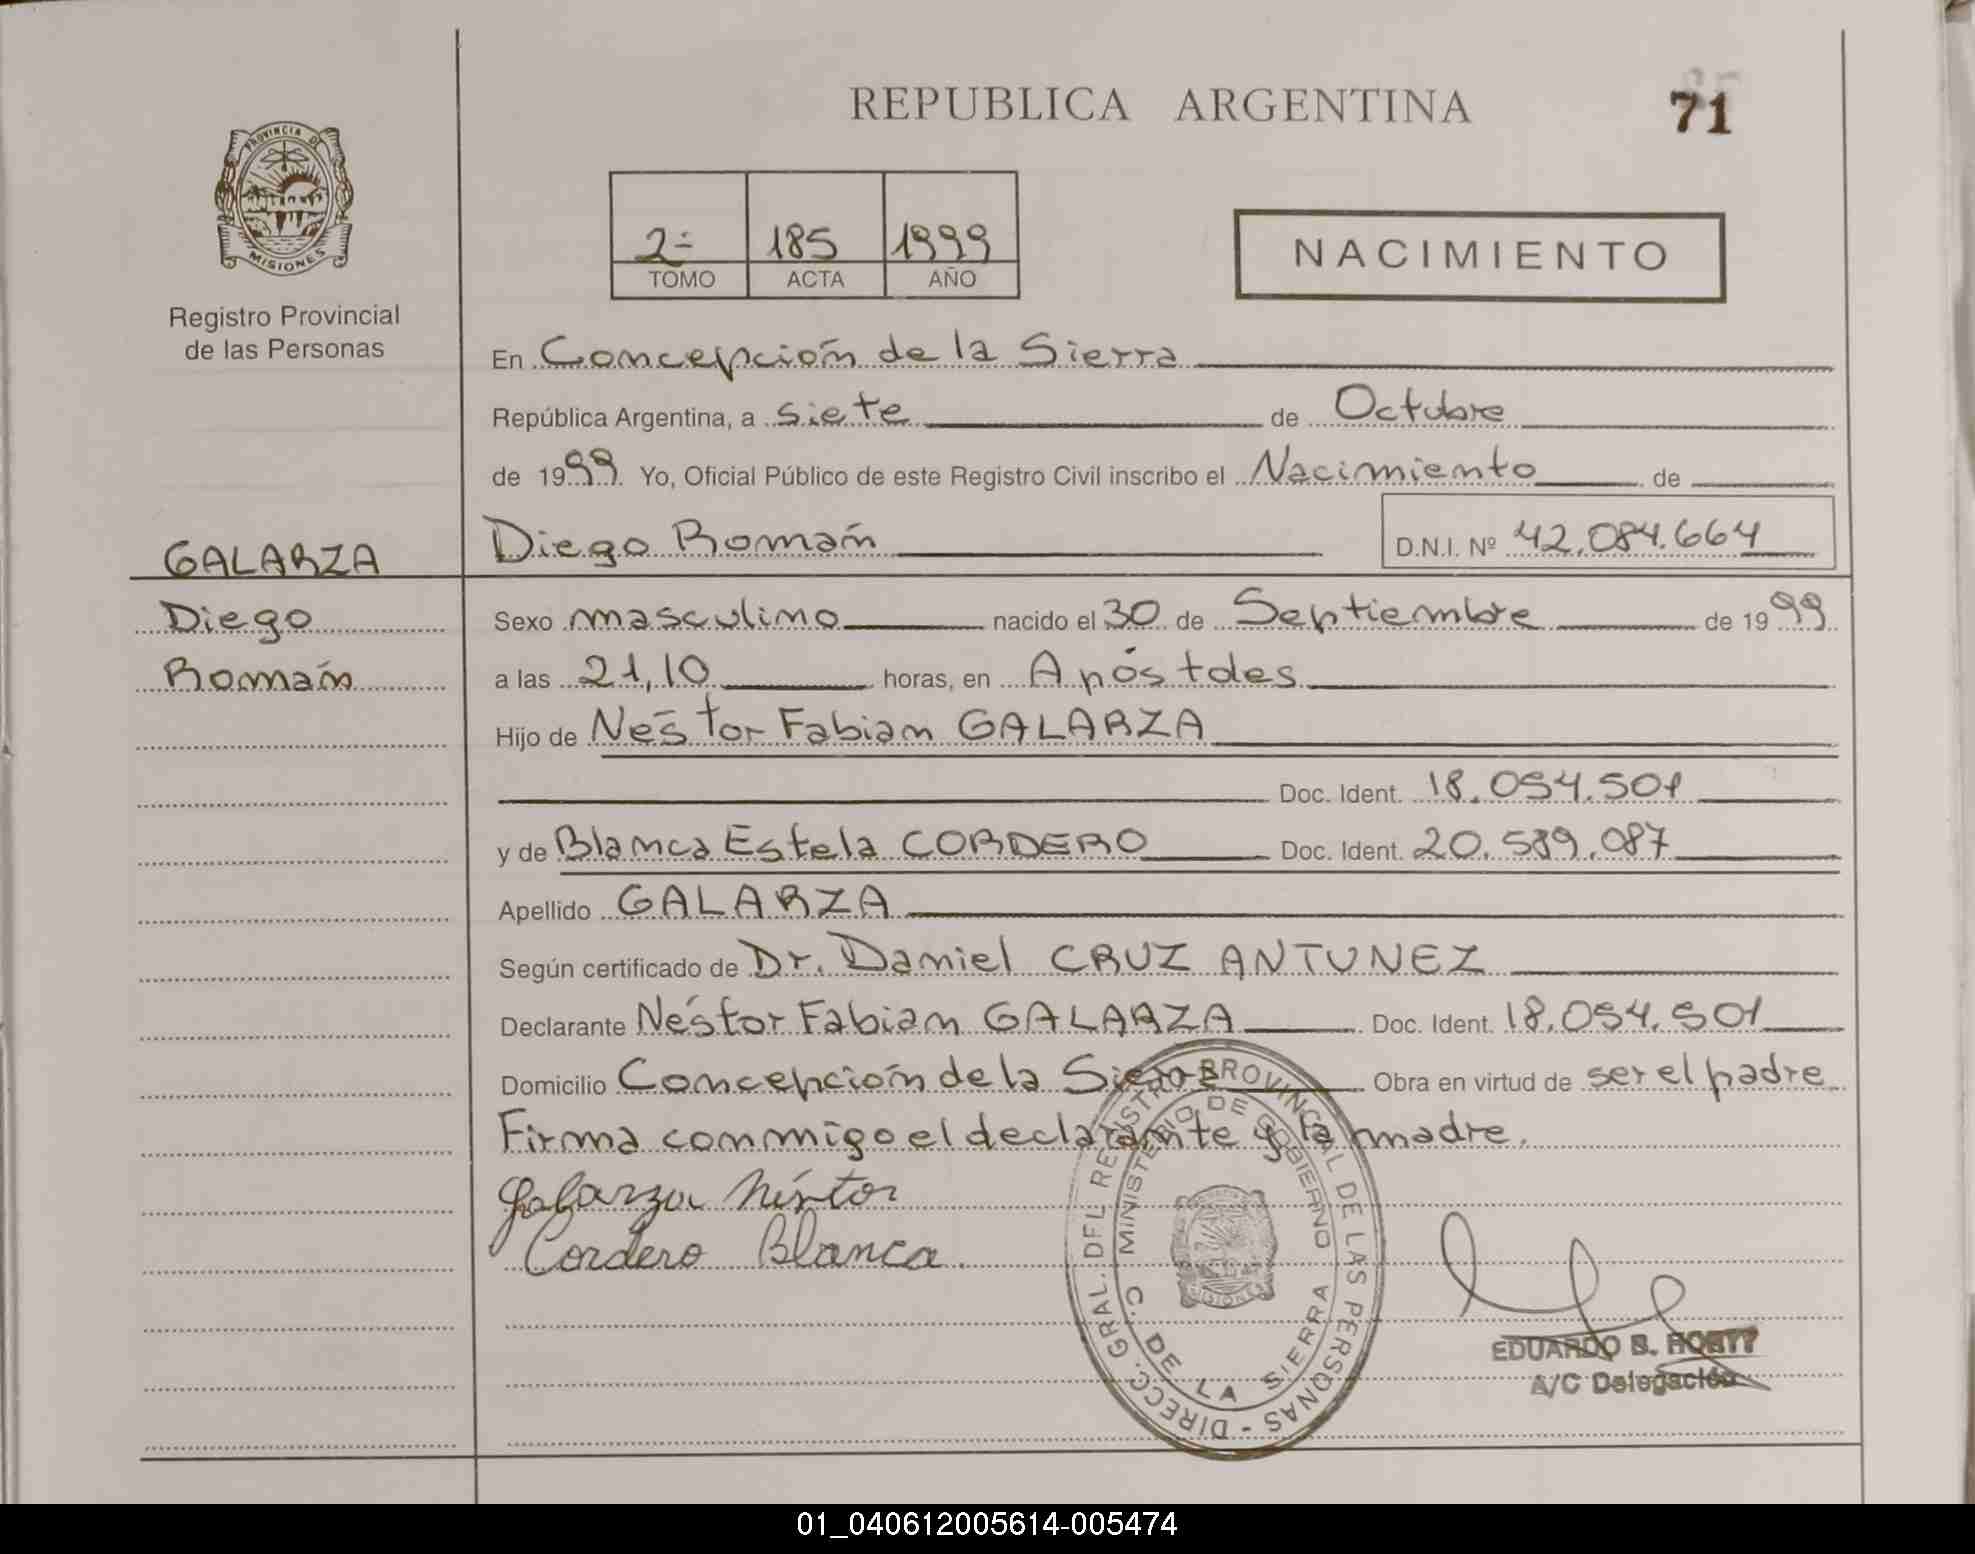 REPUBLICA ARGENTINA
71
PROVINCIA DE
MISIONES
Registro Provincial
de las Personas
2- 185 1999
TOMO ACTA AÑO
NACIMIENTO
En Concepción de la Sierra
República Argentina, a siete de Octubre
de 1999 Yo, Oficial Público de este Registro Civil inscribo el Nacimiento de
GALARZA
Diego Román D.N.I. Nº 42.084.664
Diego
Román
Sexo masculino nacido el 30 de Septiembre de 1999
a las 21,10 horas, en Apóstoles
Hijo de Néstor Fabian GALARZA
Doc. Ident. 18.054.501
y de Blanca Estela CORDERO Doc. Ident. 20.589.087
Apellido GALARZA
Según certificado de Dr. Daniel CRUZ ANTUNEZ
Declarante Néstor Fabian GALARZA Doc. Ident. 18.054.501
Domicilio Concepción de la Sierra Obra en virtud de ser el padre
Firma conmigo el declarante y la madre.
Galarza Néstor
Cordero Blanca.
DIRECC. GRAL. DEL REGISTRO PROVINCIAL DE LAS PERSONAS -
MINISTERIO DE GOBIERNO
C. DE LA SIERRA
MISIONES
EDUARDO
A/C Delegación
01_040612005614-005474